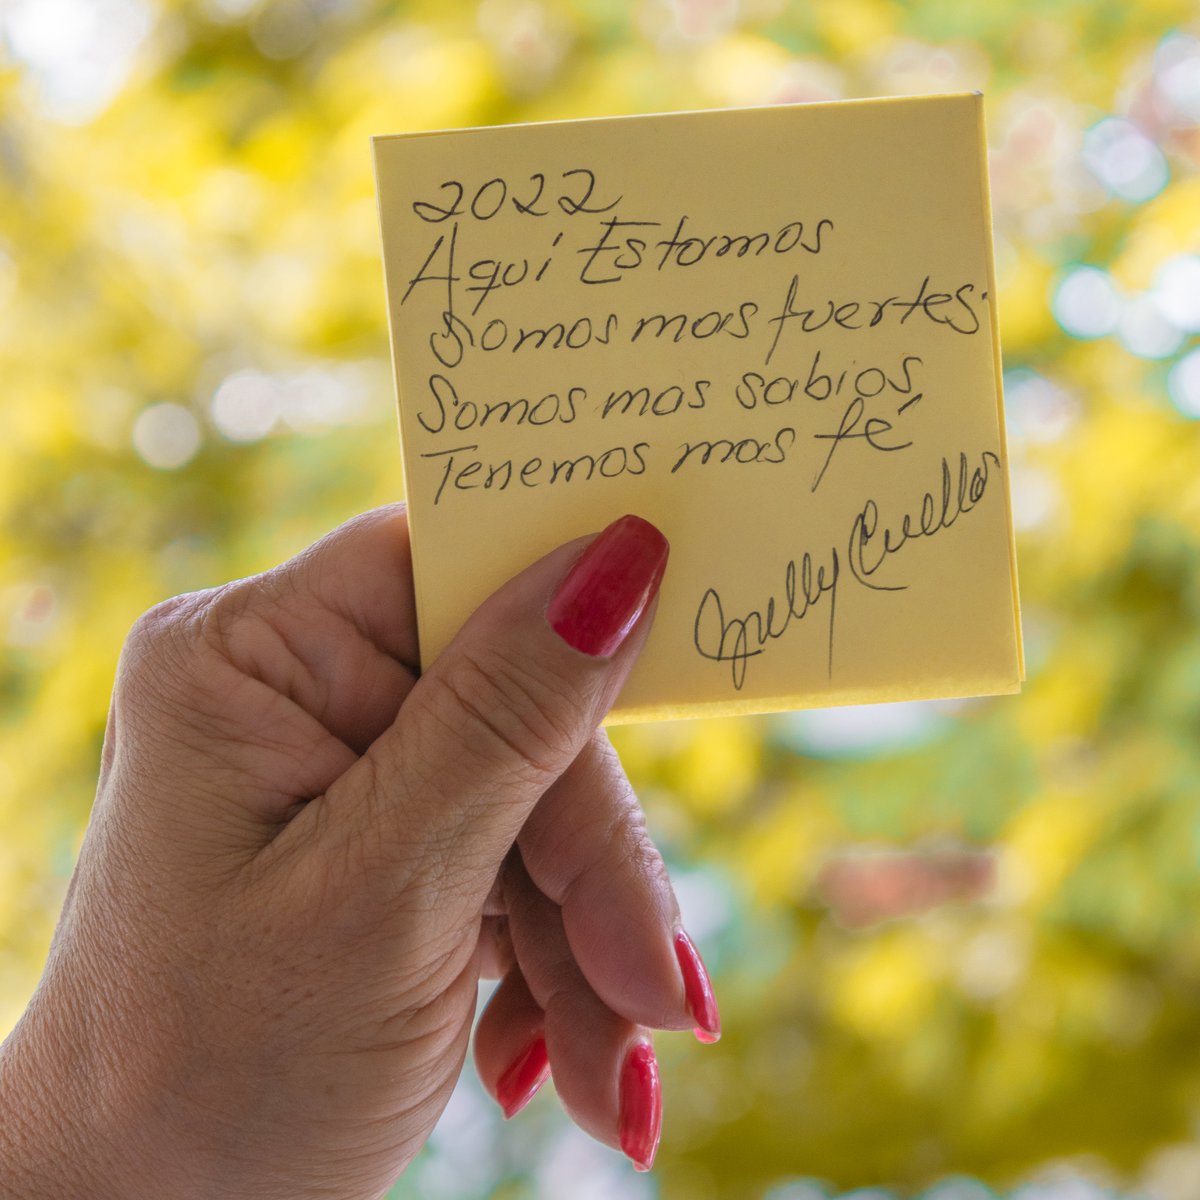 2022
Aquí Estamos
Somos mas fuertes.
Somos mas sabios
Tenemos mas fé
Nelly Cuellar